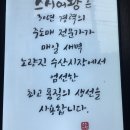 스시여왕은
30년 경력의
중도매 전문가가
매일 새벽
노량진 수산시장에서
엄선한
최고 품질의 생선을
사용합니다